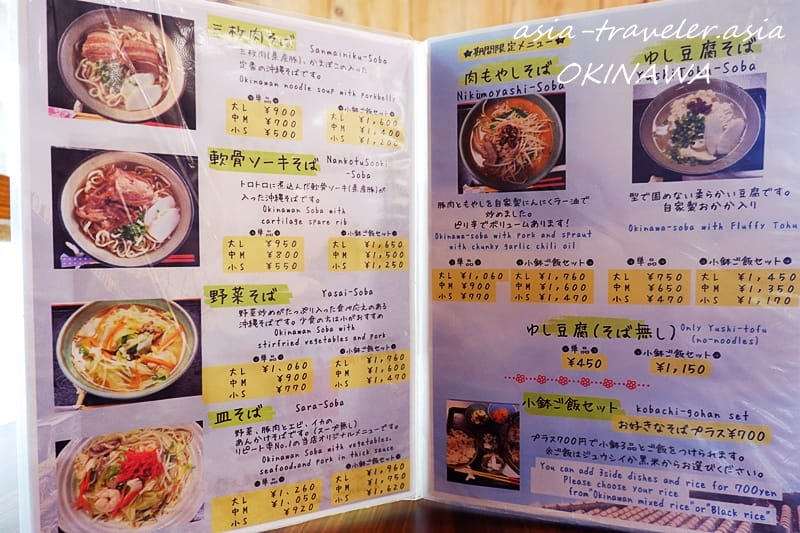 三枚肉そば
Sanmainiku-Soba
三枚肉(県産豚)、かまぼこの入った
定番の沖縄そばです。
Okinawan noodle soup with porkbelly
単品
小鉢ご飯セット
大L ¥900 ¥1,600
中M ¥700 ¥1,400
小S ¥500 ¥1,200
軟骨ソーキそば
NankotuSooki
-Soba
トロトロに煮込んだ軟骨ソーキ(県産豚)が
入った沖縄そばです。
Okinawan Soba with
cartilage spare rib
単品
小鉢ご飯セット
大L ¥950 大L ¥1,650
中M ¥800 中M ¥1,500
小S ¥550 小S ¥1,250
野菜そば
Yasai-Soba
野菜炒めがたっぷり入った食べ応えのある
沖縄そばです。少食の方は小がおすすめ
Okinawan Soba with
stirfried vegetables and pork
単品
小鉢ご飯セット
大L ¥1,060 大L ¥1,760
中M ¥900 中M ¥1,600
小S ¥770 小S ¥1,470
皿そば
Sara-Soba
野菜、豚肉とエビ、イカの
あんかけそばです。(スープ無し)
リピート率No.1の当店オリジナルメニューです。
Okinawan Soba with vegetables,
seafood,and pork in thick sauce
単品
小鉢ご飯セット
大L ¥1,260 大L ¥1,960
中M ¥1,050 中M ¥1,750
小S ¥920 小S ¥1,620
asia-traveler.asia
OKINAWA
★期間限定メニュー★
肉もやしそば
Nikumoyashi-Soba
豚肉ともやしを自家製にんにくラー油で
炒めました。
ピリ辛でボリュームあります!
Okinawa-soba with Pork and spraut
with chunky garlic chili oil
単品
小鉢ご飯セット
大L ¥1,060 大L ¥1,760
中M ¥900 中M ¥1,600
小S ¥770 小S ¥1,470
ゆし豆腐そば
Yushidofu-Soba
型で固めない柔らかい豆腐です。
自家製おかか入り
Okinawa-soba with Fluffy Tohu
単品
小鉢ご飯セット
大L ¥750 大L ¥1,450
中M ¥650 中M ¥1,350
小S ¥470 小S ¥1,170
ゆし豆腐(そば無し)
Only Yushi-tofu
(no-noodles)
単品
小鉢ご飯セット
¥450
¥1,150
小鉢ご飯セット
kobachi-gohan set
お好きなそばプラス¥700
プラス700円で小鉢3品とご飯をつけられます。
※ご飯はジュウシイか黒米からお選びください。
You can add 3side dishes and rice for 700yen
Please choose your rice
from"Okinawan mixed rice"or"Black rice"